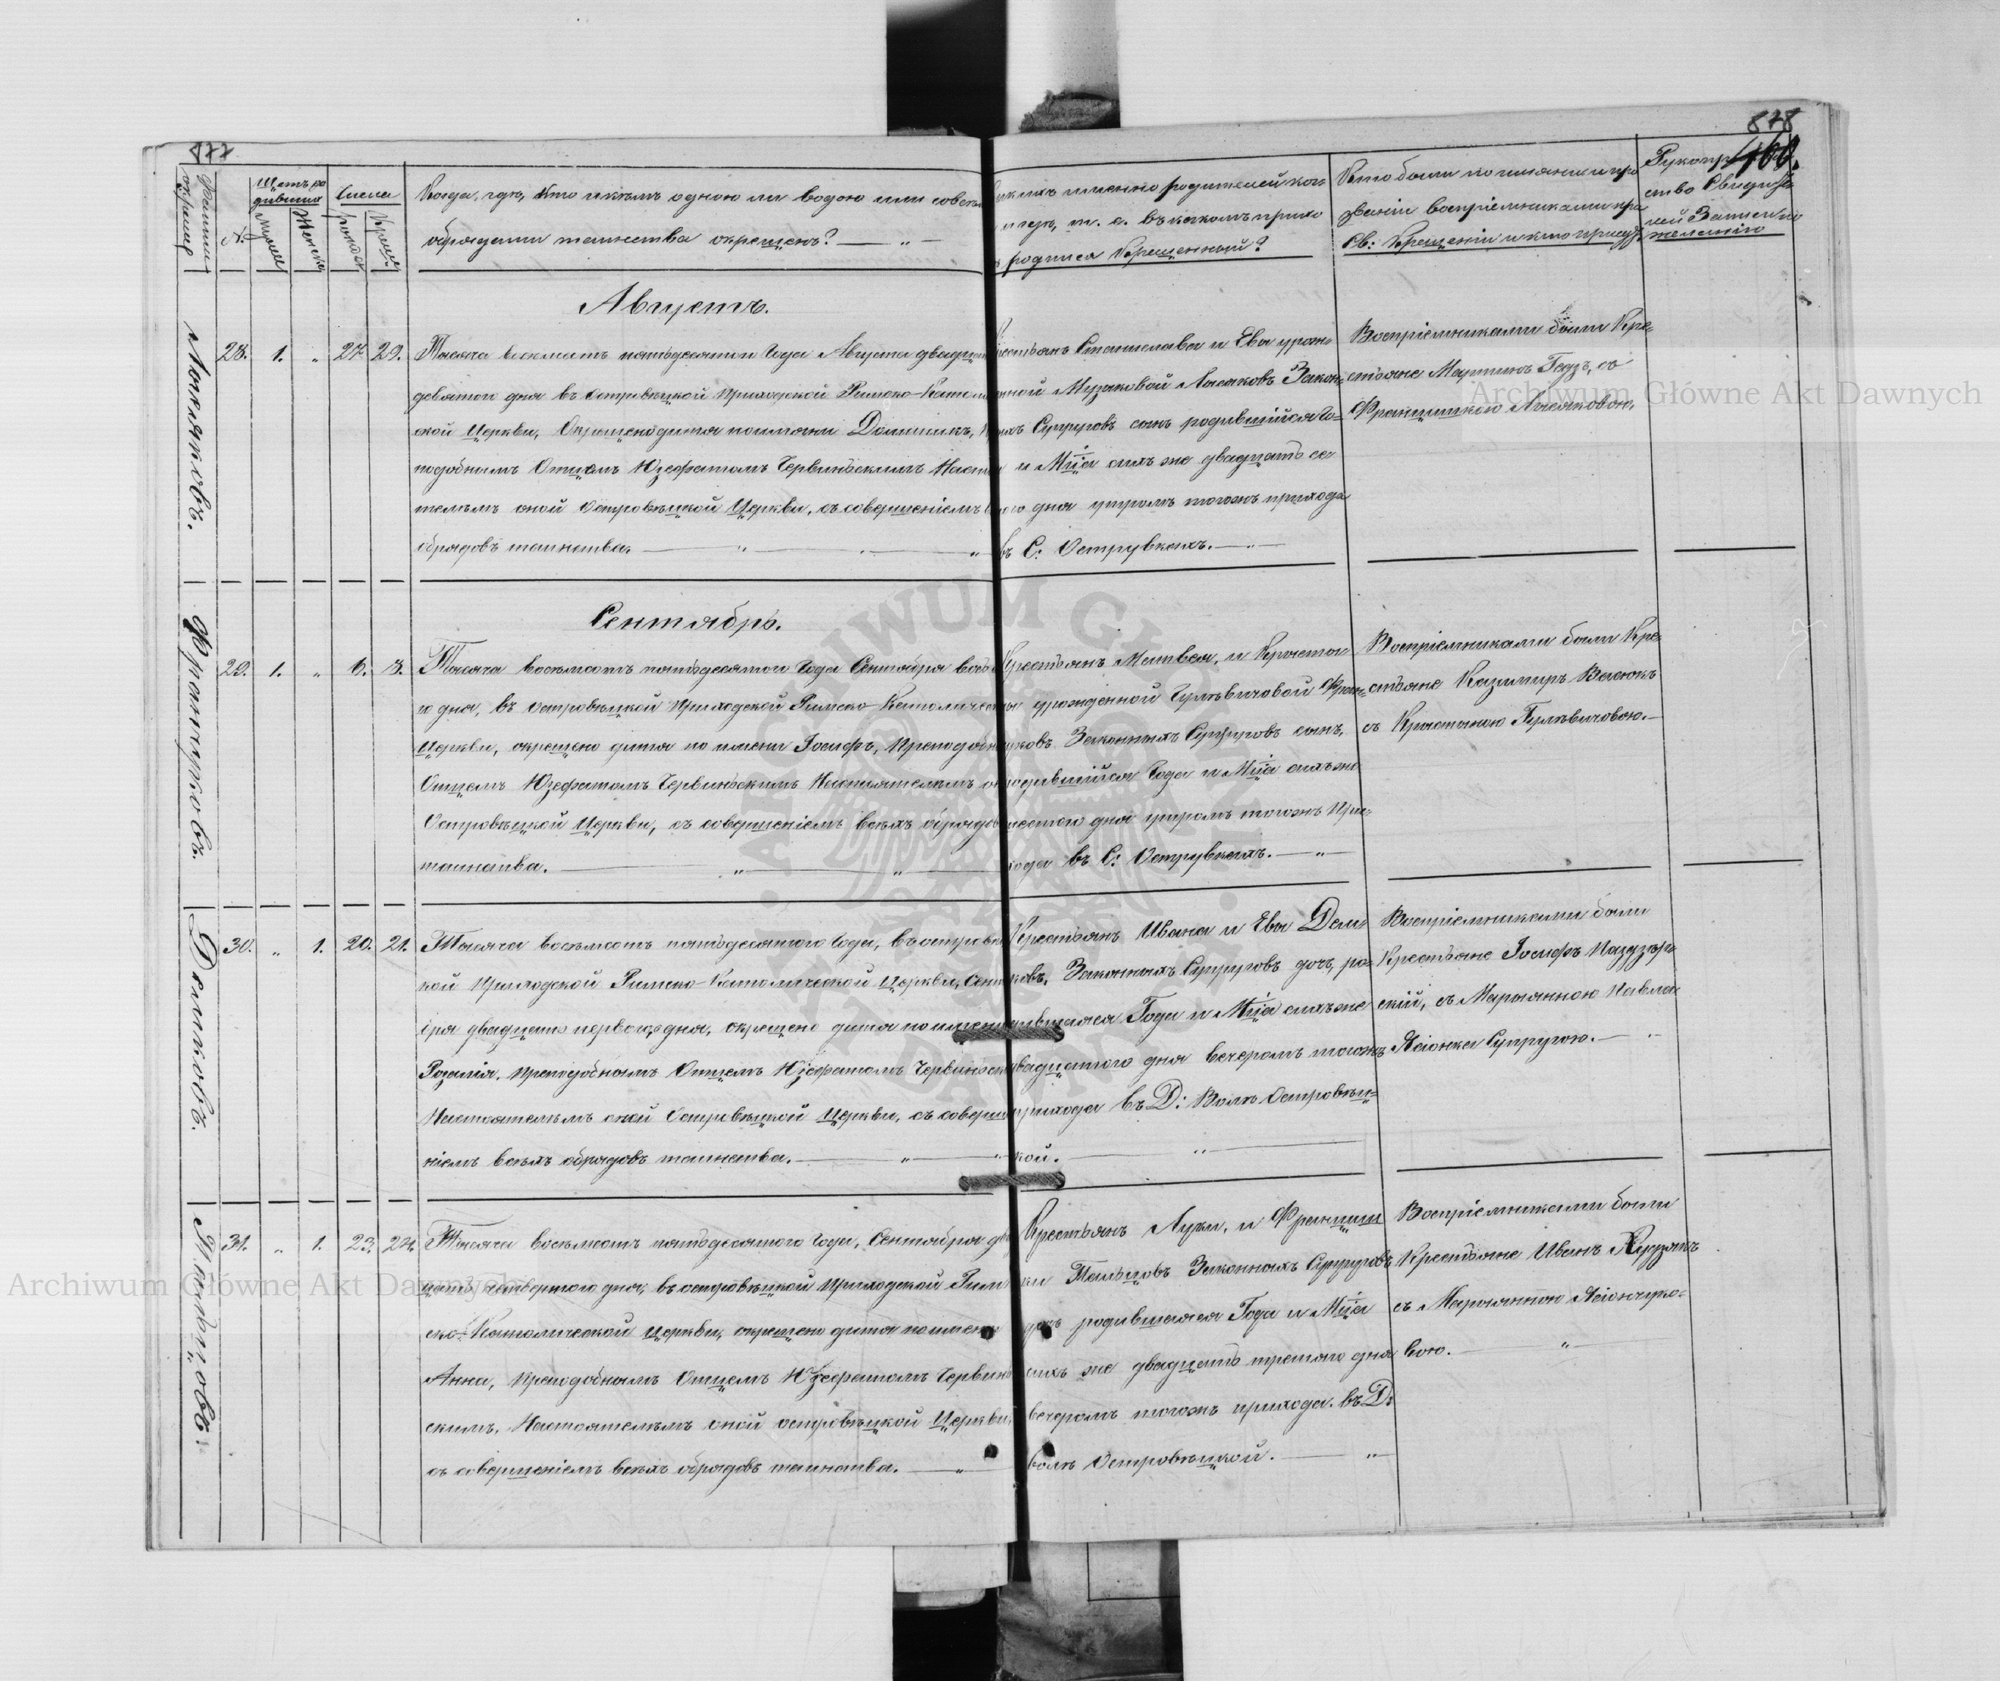 877
878
160.
Фамилия окрещен.
№
Щетъ родившихся
Мужск.
Женска
Числа
рожден
Крещ.
Когда, гдѣ, Кто и кѣмъ одною ли водою или совсѣми
обрядами таинства окрещенъ? — „ —
какихъ именно родителей ког-
и гдѣ, т. е. въ какомъ прихо
родился Крещенный?
Кто были по имяни и про
званіи воспріемниками при
Св: Крещеніи и кто присут
Рукопр
ство Свидѣ
лей Записи по
желанію
Августъ.
Лысяковъ.
28. 1. „ 27. 29.
Тысяча восемьсотъ пятьдесятаго Года Августа двадцать
девятаго дня въ Островѣцкой Приходской Римско-Католич
ской Церкви, Окрещено дитя по имяни Доминикъ,
подобнымъ Отцемъ Юзефатомъ Червинскимъ Настоя
телемъ оной Островѣцкой Церкви, съ совершеніемъ
обрядовъ таинства. — „ — „
Крестьянъ Станислава и Евы урож-
денной Музыковой Лысяковъ Закон-
ныхъ Супруговъ сынъ родившійся Го-
да и Мца сихъ же двадцать се
дня утромъ тогожъ прихода
въ С: Острувкахъ. — „
Воспріемниками были Кре-
стьяне Мартинъ Гадзъ, съ
Францишкою Лысяковою.
Сентябрь.
Франчуковъ.
29. 1. „ 6. 8.
Тысяча восемьсотъ пятьдесятаго Года Сентября вось
го дня, въ Островѣцкой Приходской Римско-Католической
Церкви, окрещено дитя по имени Іосифъ, Преподобн
Отцемъ Юзефатомъ Червинскимъ Настоятелемъ он
Островѣцкой Церкви, съ совершеніемъ всѣхъ обрядов
таинства. — „ — „
Крестьянъ Матвея, и Кристи
ны урожденной Гулѣвичовой Фран-
чуковъ Законныхъ Супруговъ сынъ,
родившійся Года и Мца сихъ же
шестаго дня утромъ тогожъ При-
хода въ С: Острувкахъ. — „
Воспріемниками были Кре-
стьяне Казимиръ Васюкъ
съ Кристиною Гулѣвичовою. —
Демковъ.
30. „ 1. 20. 21.
Тысяча восемьсотъ пятьдесятаго Года, въ островѣц
кой Приходской Римско-Католической Церкви, Сент
бря двадцать перваго дня, окрещено дитя по имени
Розалія. Преподобнымъ Отцемъ Юзефатомъ Червинским
Настоятелемъ оной Островѣцкой Церкви, съ соверше
ніемъ всѣхъ обрядовъ таинства. — „ — „
Крестьянъ Ивана и Евы Дем-
ковъ, Законныхъ Супруговъ дочь, ро-
дившаяся Года и Мца сихъ же
двадцатаго дня вечеромъ тогожъ
прихода въ Д: Волѣ Островѣц-
кой. „
Воспріемниками были
Крестьяне Іосифъ Наздзѣр-
скій, съ Марьянною Павла
Ясіонка Супругою. — „
Тельцовъ.
31. „ 1. 23. 24.
Тысяча восемьсотъ пятьдесятаго Года, Сентября два
цать четвертаго дня, въ островѣцкой Приходской Рим
ско-Католической Церкви, окрещено дитя по имени
Анна, Преподобнымъ Отцемъ Юзефатомъ Червин
скимъ, Настоятелемъ оной островѣцкой Церкви,
съ совершеніемъ всѣхъ обрядовъ таинства. — „
Крестьянъ Луки, и Францишки
Тельцовъ Законныхъ Супруговъ
дочь родившаяся Года и Мца
сихъ же двадцать третьяго дня
вечеромъ тогожъ прихода. въ Д:
Волѣ Островѣцкой. — „
Воспріемниками были
Крестьяне Иванъ Кудзякъ
съ Марьянною Ясіончуко-
вою. — „
Archiwum Główne Akt Dawnych
Archiwum Główne Akt Dawnych